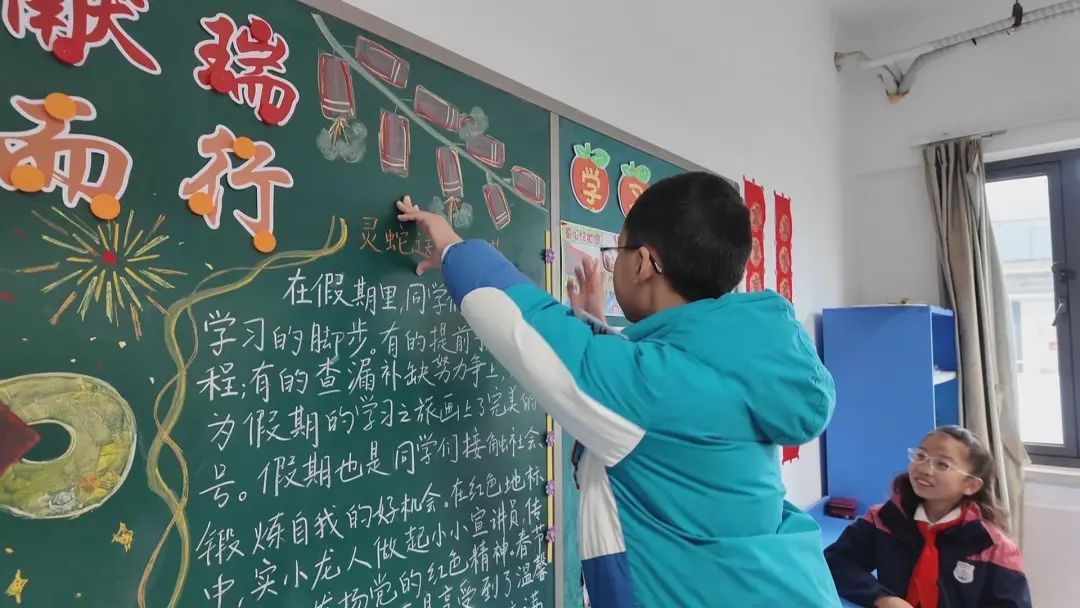 献瑞
而行
灵蛇
学
在假期里,同学
学习的脚步。有的提前
程;有的查漏补缺努力争上,
为假期的学习之旅画上了完美的
号。假期也是同学们接触社会
锻炼自我的好机会。在红色地标
中,实小龙人做起小小宣讲员,传
扬党的红色精神。春节
享受到了温馨